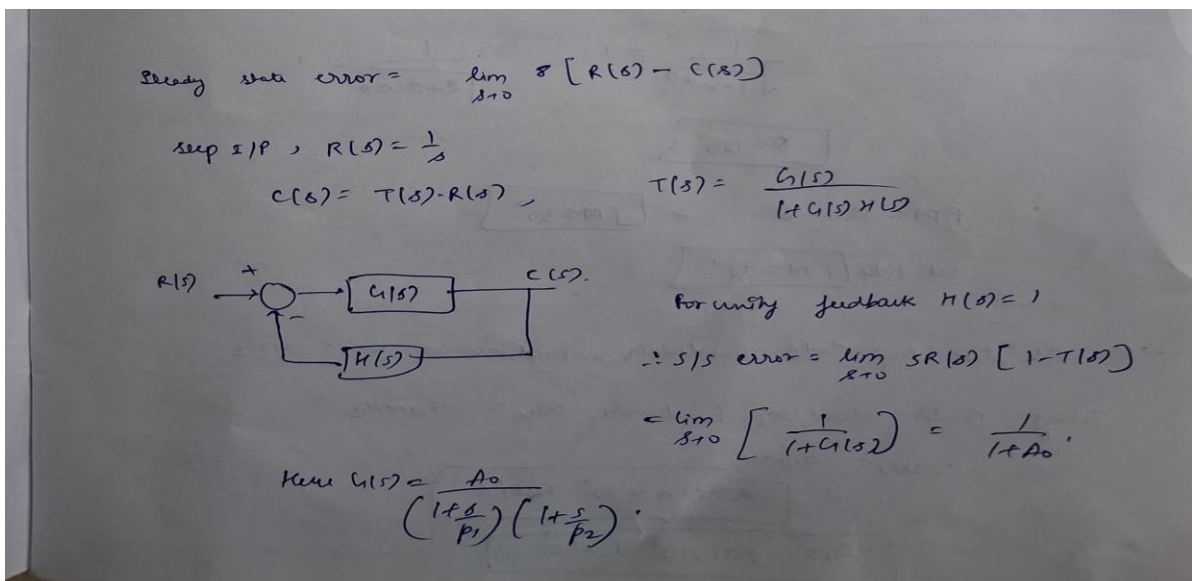 Steady state error = lim s→0 s [ R(s) - C(s) ]
step I/P , R(s) = 1/s
C(s) = T(s)·R(s) , T(s) = G(s) / 1+G(s) H(s)
R(s) + - G(s) C(s).
H(s)
For unity feedback H(s) = 1
∴ s/s error = lim s→0 SR(s) [ 1 - T(s) ]
= lim s→0 [ 1 / 1+G(s) ] = 1 / 1+A0 .
Here G(s) = A0 / (1+s/p1) (1+s/p2) .